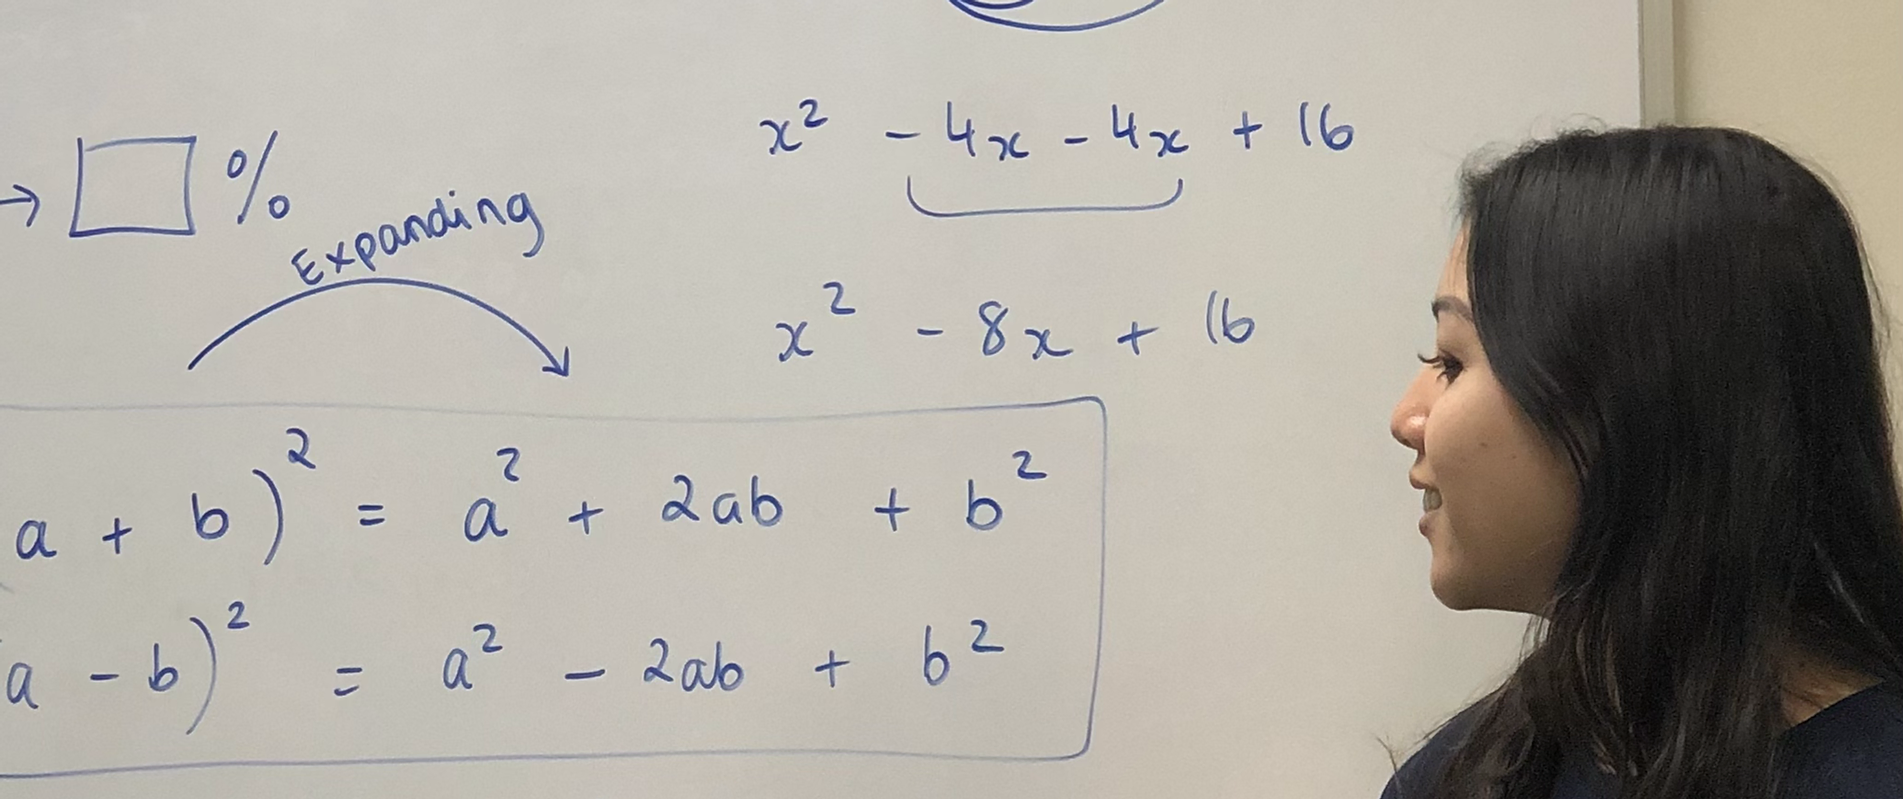 x² - 4x - 4x + 16
→ □ %
Expanding
x² - 8x + 16
a + b)² = a² + 2ab + b²
a - b)² = a² - 2ab + b²